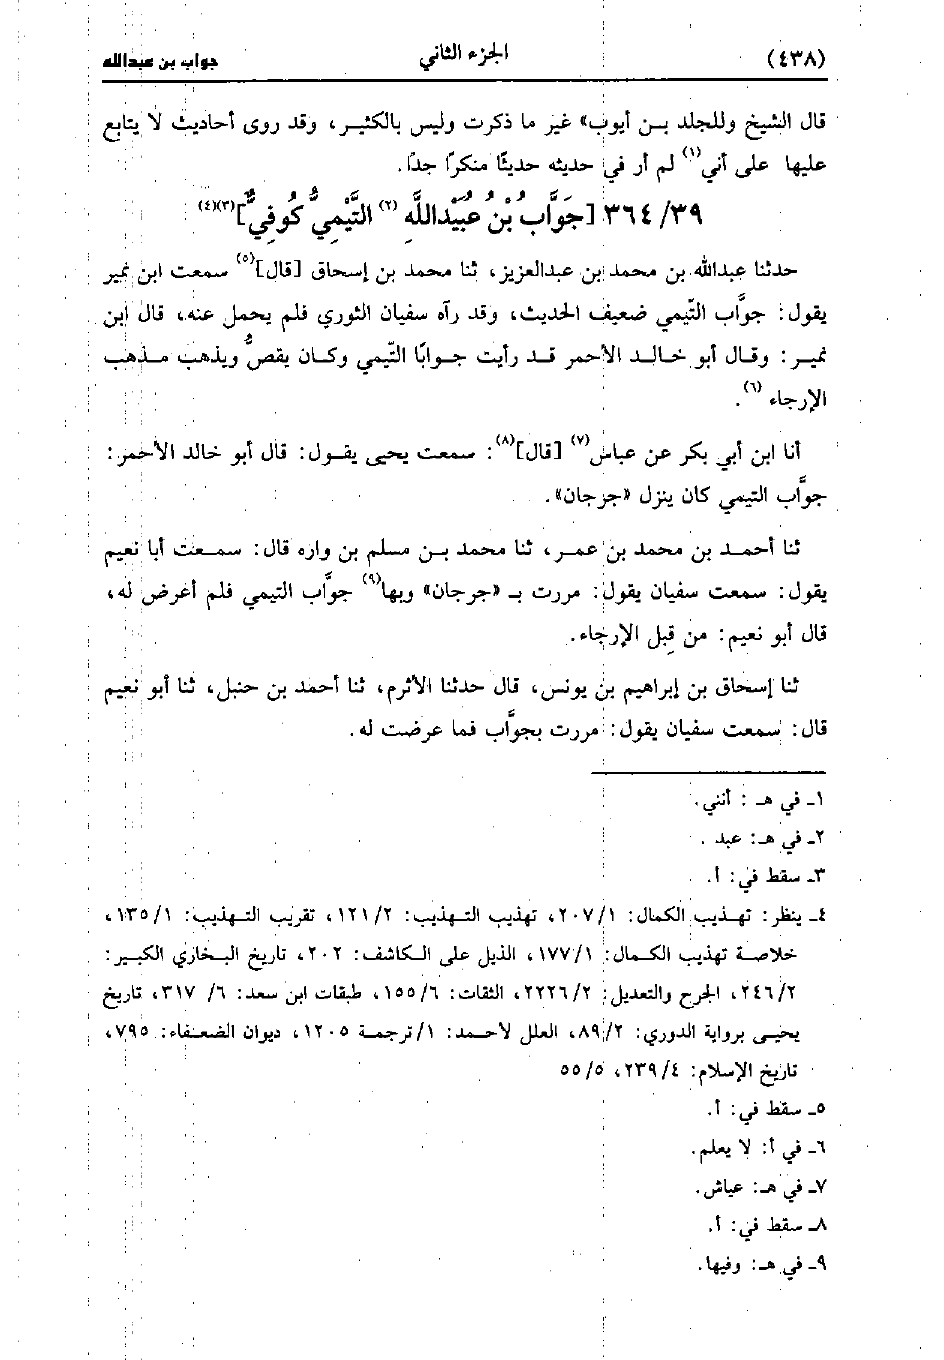 (٤٣٨) الجزء الثاني جواب بن عبدالله
قال الشيخ وللجلد بـن أيوب» غير ما ذكرت وليس بالكثيـر، وقد روى أحاديث لا يتابع
عليها على أني(١) لم أر في حديثه حديثًا منكرًا جدًا.
٣٦٤/٣٩ [جَوَّابُ بْنُ عُبَيْدِاللَّهِ(٢) التَّيْمِيُّ كُوفِيٌّ](٣)(٤)
حدثنا عبدالله بن محمد بن عبدالعزيز، ثنا محمد بن إسحاق [قال](٥) سمعت ابن نمير
يقول: جوَّاب التّيمي ضعيف الحديث، وقد رآه سفيان الثوري فلم يحمل عنه، قال ابن
نميـر: وقـال أبو خالـد الأحمر قـد رأيت جـوابًا التّيمي وكـان يقصُّ ويذهب مـذهب
الإرجاء(٦).
أنا ابن أبي بكر عن عباس(٧) [قال](٨): سمعت يحيى يقـول: قال أبو خالد الأحمر:
جوَّاب التيمي كان ينزل «جرجان».
ثنا أحمـد بن محمد بن عمـر، ثنا محمد بـن مسلم بن واره قال: سمـعت أبا نعيم
يقول: سمعت سفيان يقول: مررت بـ «جرجان» وبها(٩) جوَّاب التيمي فلم أعرض له،
قال أبو نعيم: من قِبل الإرجاء.
ثنا إسحاق بن إبراهيم بن يونس، قال حدثنا الأثرم، ثنا أحمد بن حنبل، ثنا أبو نعيم
قال: سمعت سفيان يقول: مررت بجوَّاب فما عرضت له.
١ـ في هـ : أنني.
٢ـ في هـ: عبد .
٣ـ سقط في: أ.
٤ـ ينظر: تهـذيب الكمال: ٢٠٧/١، تهذيب التـهذيب: ١٢١/٢، تقريب التـهذيب: ١٣٥/١،
خلاصـة تهذيب الكـمال: ١٧٧/١، الذيل على الـكاشف: ٢٠٢، تاريخ البـخاري الكبير:
٢٤٦/٢، الجرح والتعديل: ٢٢٢٦/٢، الثقات: ١٥٥/٦، طبقات ابن سعد: ٦/ ٣١٧، تاريخ
يحيـى برواية الدوري: ٨٩/٢، العلل لأحمـد: ١/ترجمـة ١٢٠٥، ديوان الضعـفاء: ٧٩٥،
تاريخ الإسلام: ٢٣٩/٤، ٥٥/٥
٥ـ سقط في: أ.
٦ـ في أ: لا يعلم.
٧ـ في هـ: عياش.
٨ـ سقط في: أ.
٩ـ في هـ: وفيها.